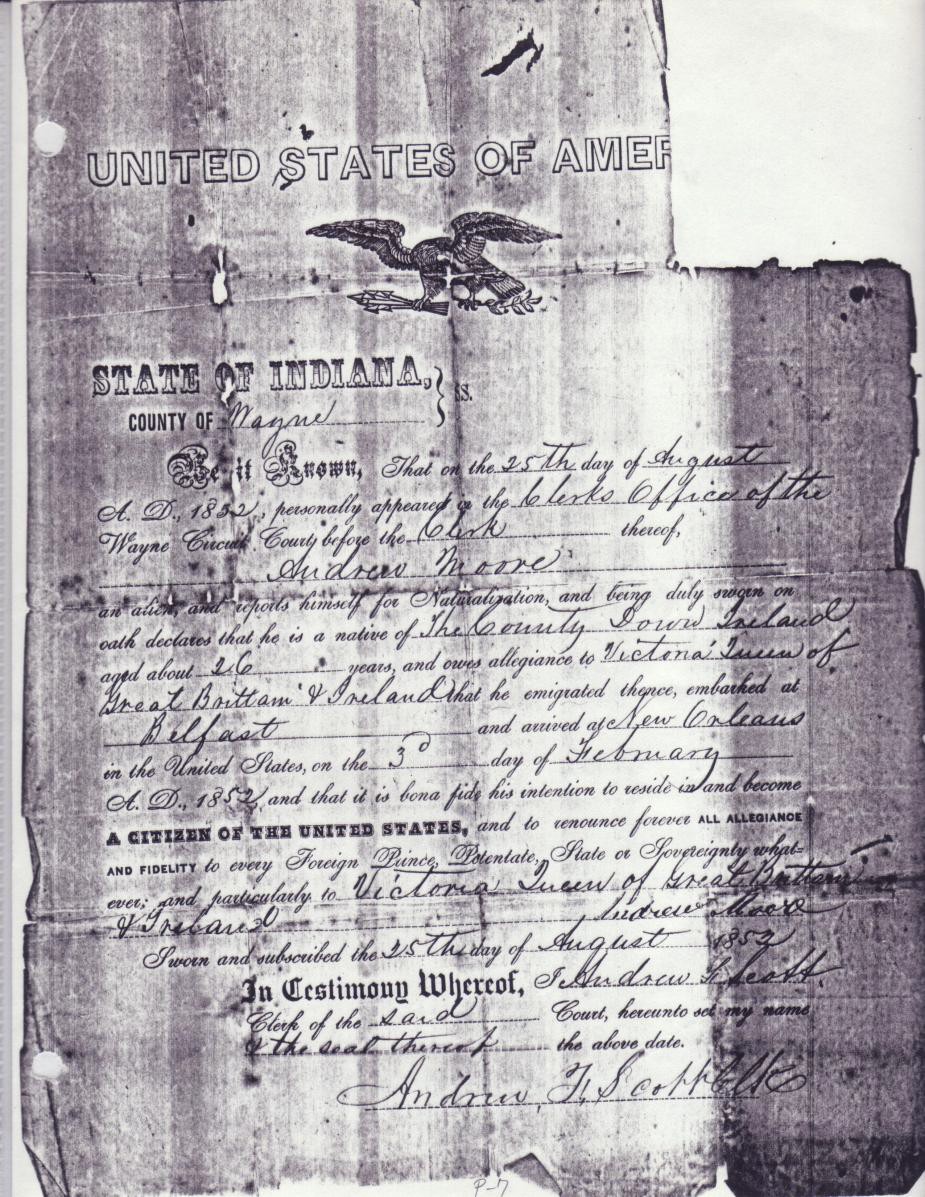 UNITED STATES OF AMER
STATE OF INDIANA, } SS.
COUNTY OF Wayne
Be it Known, That on the 25th day of August
A. D., 1852, personally appeared in the Clerks Office of the
Wayne Circuit Court, before the Clerk thereof,
Andrew Moore
an alien, and reports himself for Naturalization, and being duly sworn on
oath declares that he is a native of The County Down Ireland
aged about 26 years, and owes allegiance to Victoria Queen of
Great Brittain & Ireland that he emigrated thence, embarked at
Belfast and arrived at New Orleans
in the United States, on the 3d day of February
A. D., 1852, and that it is bona fide his intention to reside in and become
A CITIZEN OF THE UNITED STATES, and to renounce forever ALL ALLEGIANCE
AND FIDELITY to every Foreign Prince, Potentate, State or Sovereignty what=
ever; and particularly to Victoria Queen of Great Brittain
& Ireland Andrew Moore
Sworn and subscribed the 25th day of August 1852
In Testimony Whereof, I Andrew F. Scott.
Clerk of the said Court, hereunto set my name
& the seal thereof the above date.
Andrew, F. Scott Clk
P-7